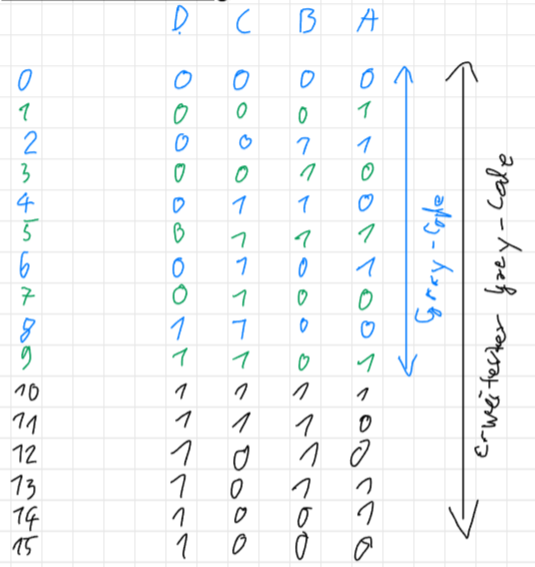 D C B A
0 0 0 0 0
1 0 0 0 1
2 0 0 1 1
3 0 0 1 0
4 0 1 1 0
5 0 1 1 1
6 0 1 0 1
7 0 1 0 0
8 1 1 0 0
9 1 1 0 1
10 1 1 1 1
11 1 1 1 0
12 1 0 1 0
13 1 0 1 1
14 1 0 0 1
15 1 0 0 0
Grey-Code
erweiterter Grey-Code